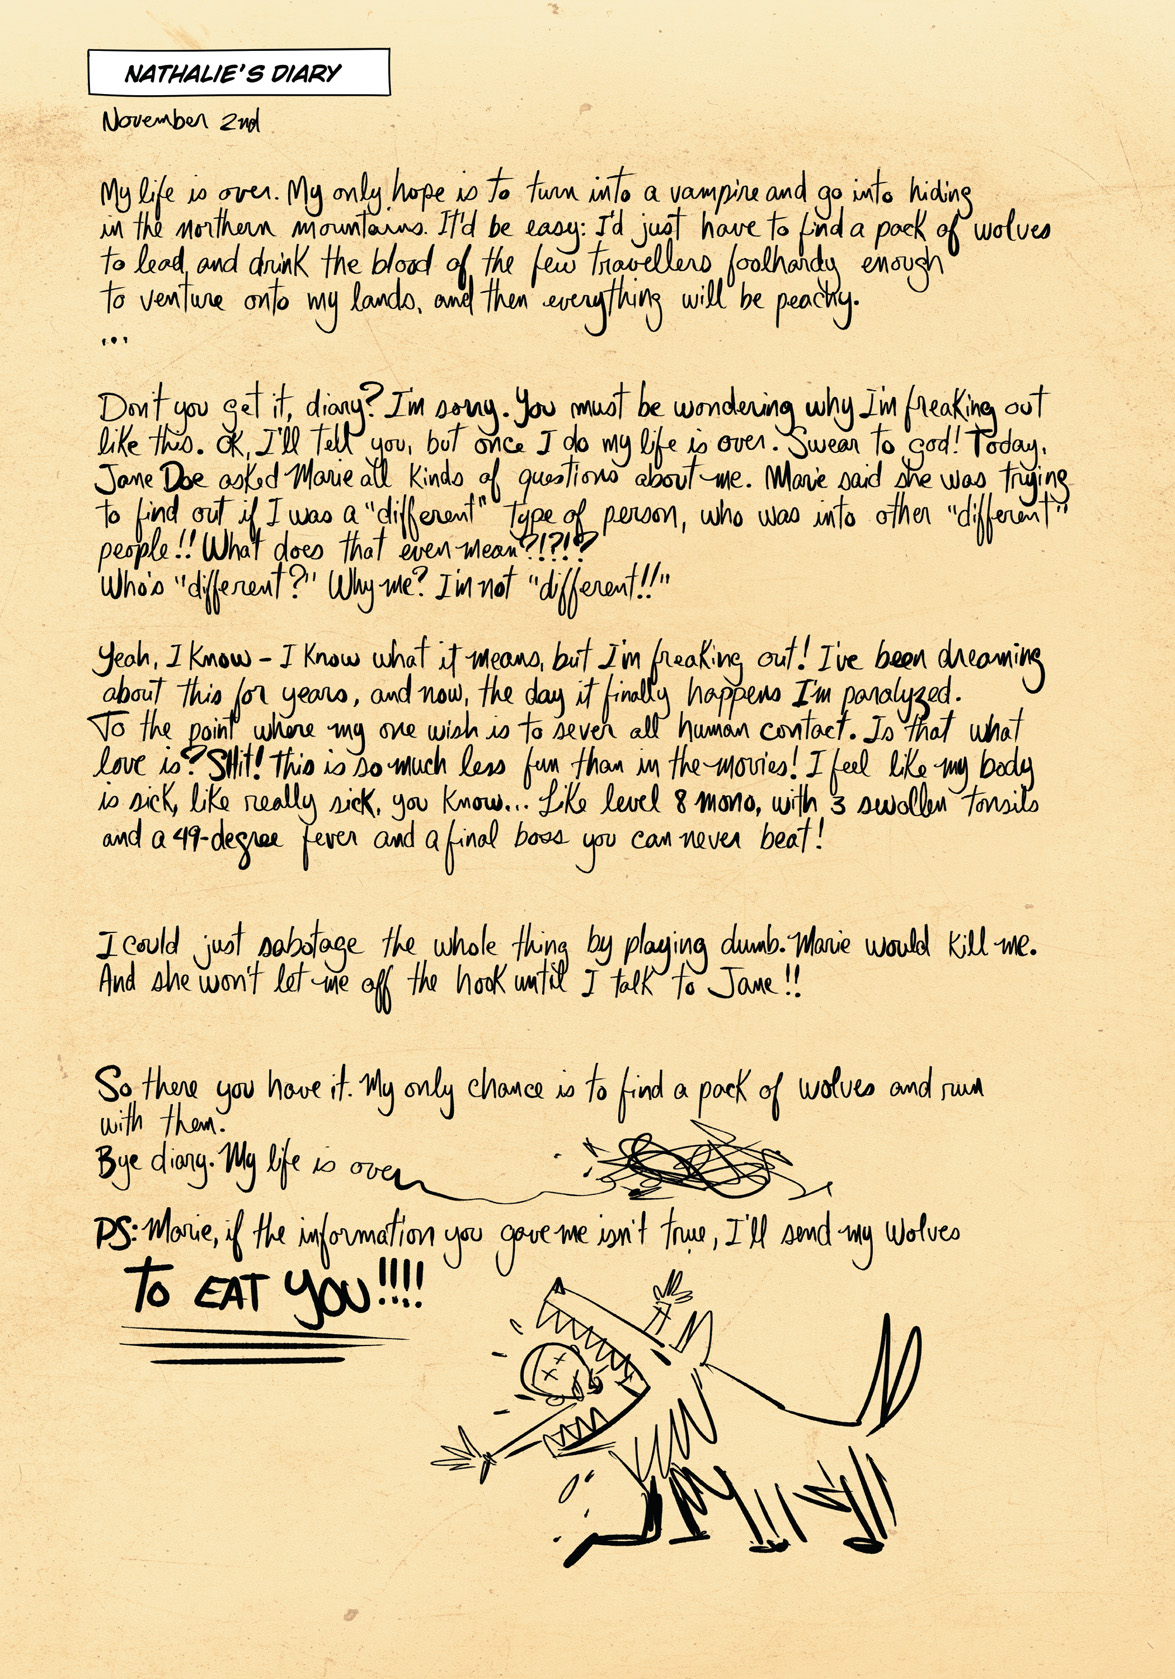 NATHALIE'S DIARY
November 2nd
My life is over. My only hope is to turn into a vampire and go into hiding
in the northern mountains. It'd be easy: I'd just have to find a pack of wolves
to lead and drink the blood of the few travellers foolhardy enough
to venture onto my lands, and then everything will be peachy.
...
Don't you get it, diary? I'm sorry. You must be wondering why I'm freaking out
like this. OK, I'll tell you, but once I do my life is over. Swear to god! Today,
Jane Doe asked Marie all kinds of questions about me. Marie said she was trying
to find out if I was a "different" type of person, who was into other "different"
people!! What does that even mean?!?!?
Who's "different?" Why me? I'm not "different!!"
Yeah, I know - I know what it means, but I'm freaking out! I've been dreaming
about this for years, and now, the day it finally happens I'm paralyzed.
To the point where my one wish is to sever all human contact. Is that what
love is? SHit! This is so much less fun than in the movies! I feel like my body
is sick, like really sick, you know... Like level 8 mono, with 3 swollen tonsils
and a 49-degree fever and a final boss you can never beat!
I could just sabotage the whole thing by playing dumb. Marie would kill me.
And she won't let me off the hook until I talk to Jane!!
So there you have it. My only chance is to find a pack of wolves and run
with them.
Bye diary. My life is over
PS: Marie, if the information you gave me isn't true, I'll send my wolves
TO EAT YOU!!!!